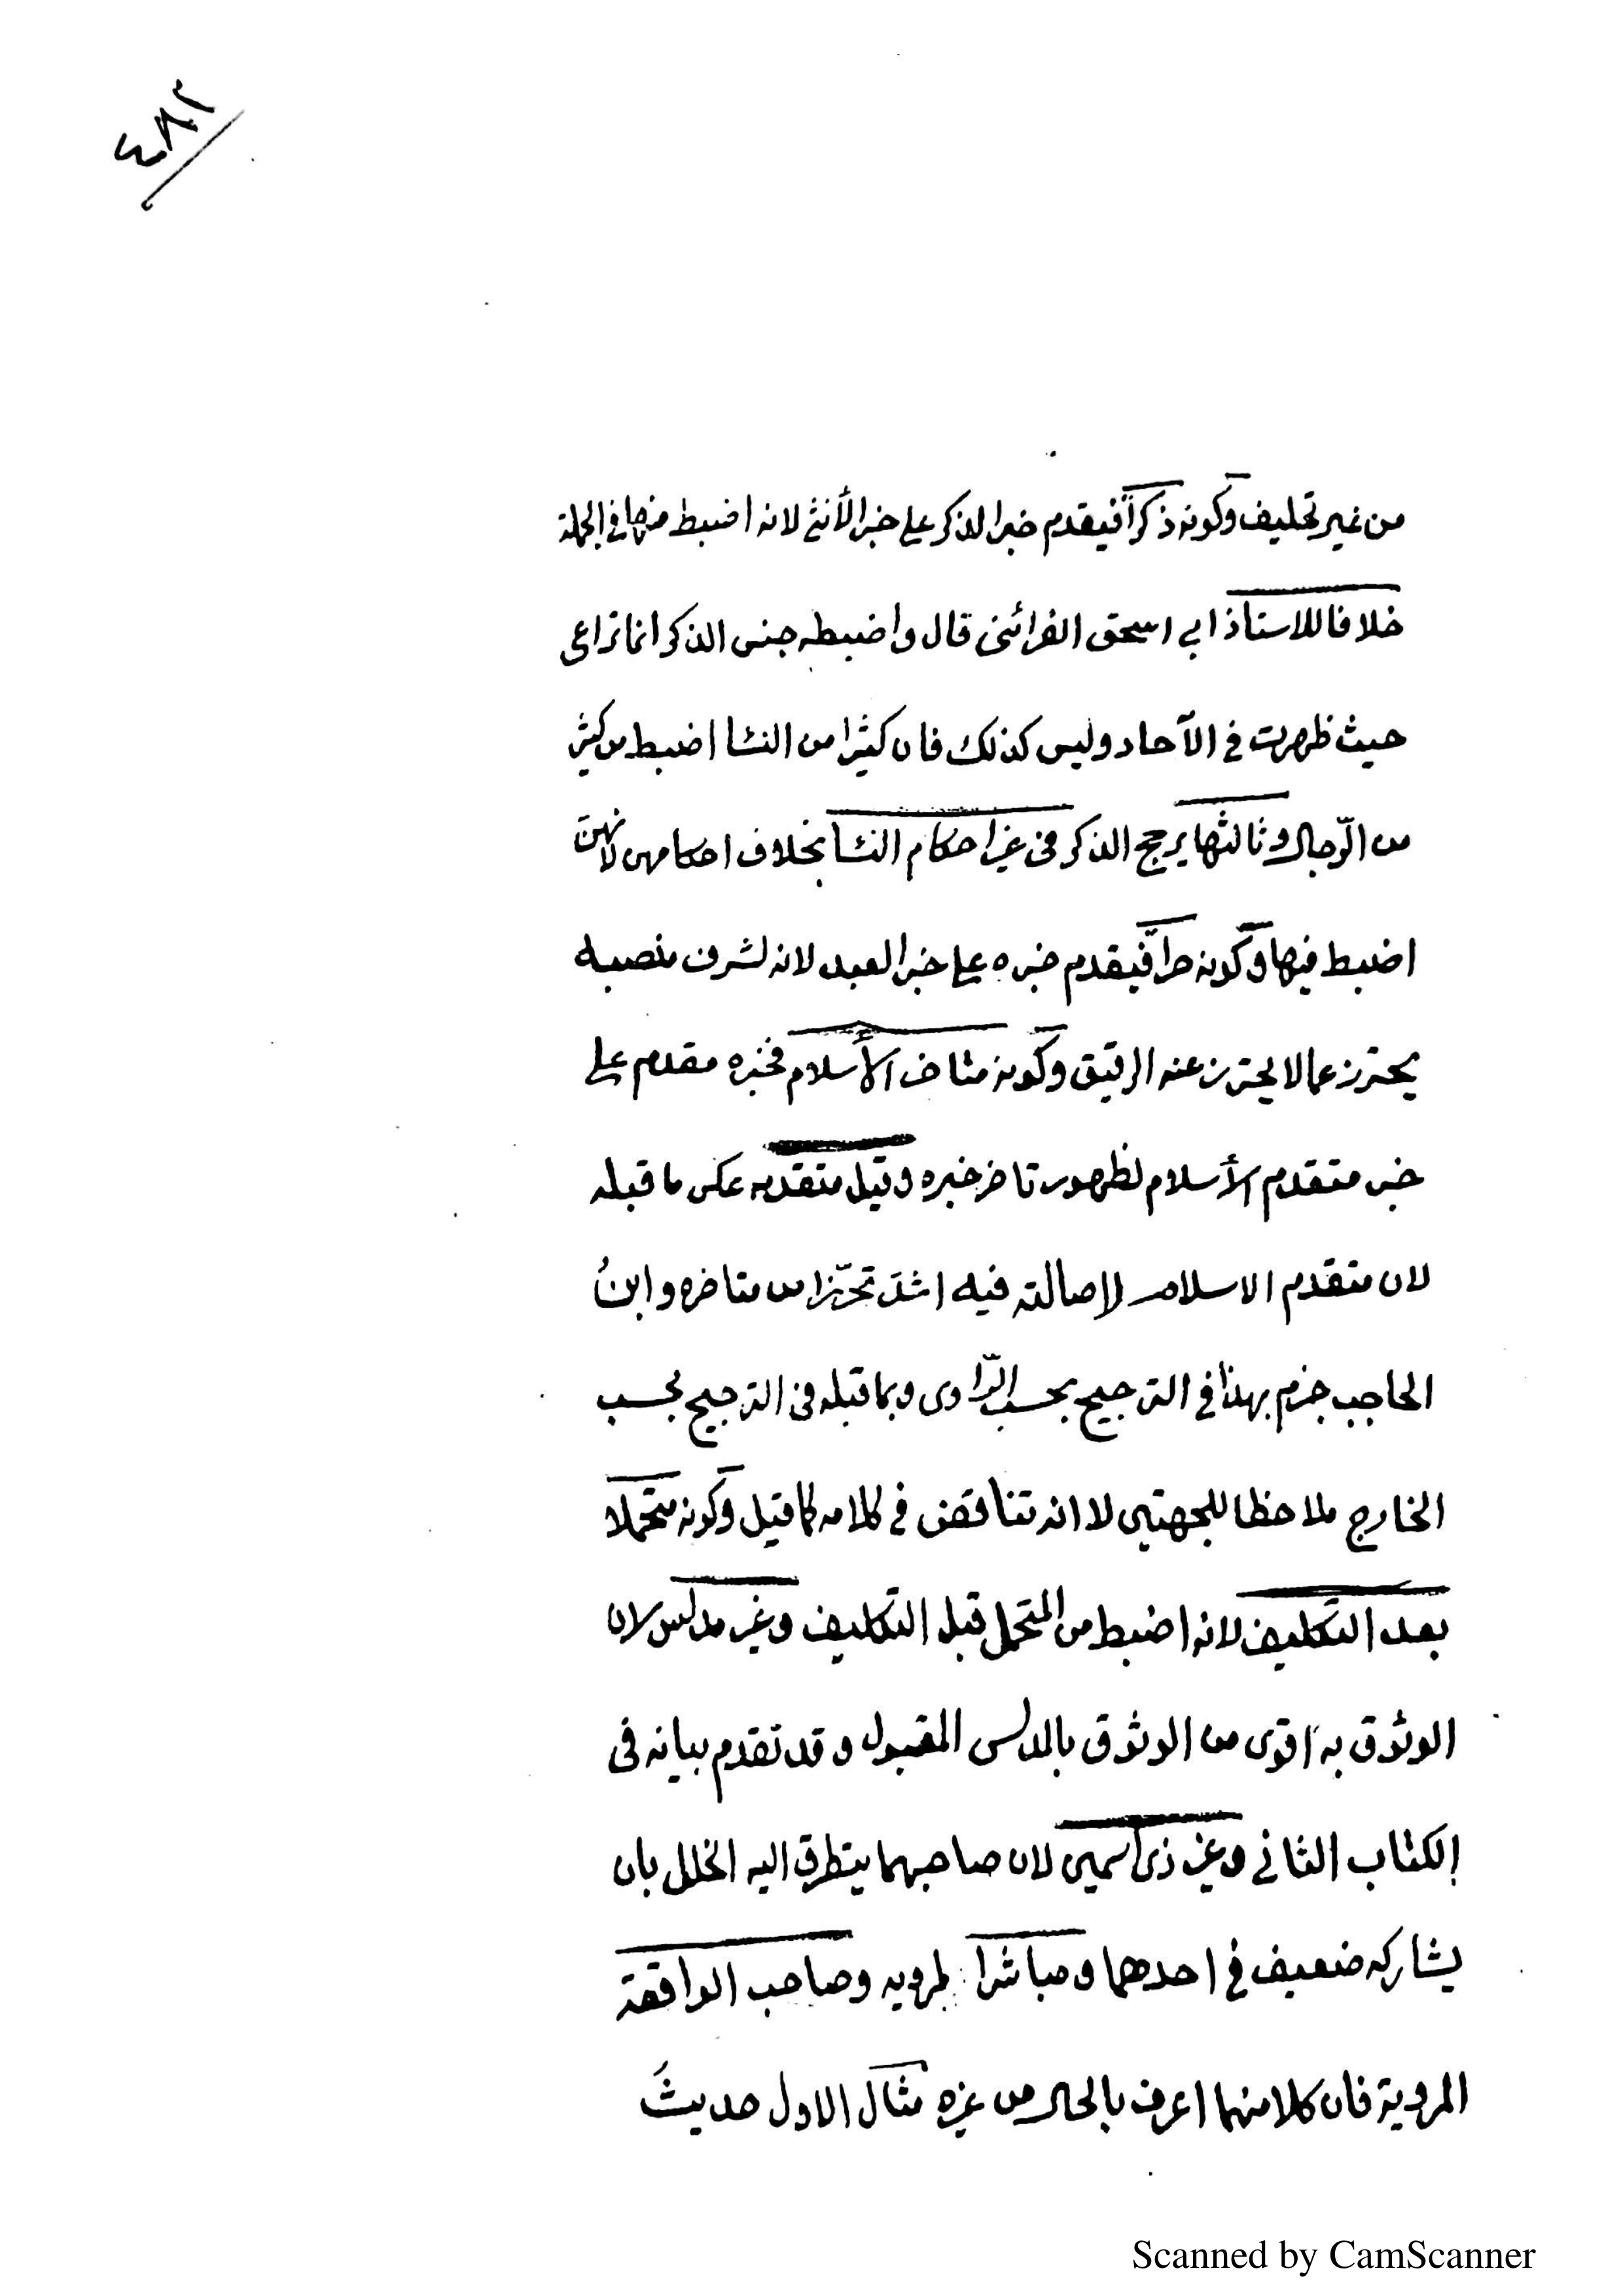 ٤٨٢
من غير تحليف وكونه ذكراً فيقدم خبر الذكر على خبر الأنثى لانه اضبط منها في الجملة
خلافا للاستاذ ابي اسحق الفرائني قال واضبطه جنس الذكر انما تراعى
حيث ظهرت في الآحاد وليس كذلك فان كثيرا من النسا اضبط من كثير
من الرّجال وثالثها يرجح الذكر في غير احكام النسا بخلاف احكامهن لانهن
اضبط فيها وكونه حرا فيقدم خبره على خبر العبد لانه لشرف منصبه
يحترز عما لا يحترز عنه الرقيق وكونه متاخر الأسلام فخبره مقدم على
خبر متقدم الأسلام لظهور تاخر خبره وقيل متقدمه عكس ما قبله
لان متقدم الاسلام لاصالته فيه اشد تحرّزا من متاخره وابنُ
الحاجب جزم بهذا في الترجيح بحسب الرّاوى وبما قبله في الترجيح بحسب
الخارج ملاحظا للجهتين لا انه تناقض في كلامه كما قيل وكونه متحملا
بعد التكليف لانه اضبط من المتحمل قبل التكليف وغير مدلس لان
الوثوق به اقوى من الوثوق بالمدلس المقبول وقد تقدم بيانه في
الكتاب الثاني وغير ذى اسمين لان صاحبهما يتطرق اليه الخلل بان
يشاركه ضعيف في احدهما ومباشرا لمرويه وصاحب الواقعة
المروية فان كلا منهما اعرف بالحال من غيره مثال الاول حديثَ
Scanned by CamScanner